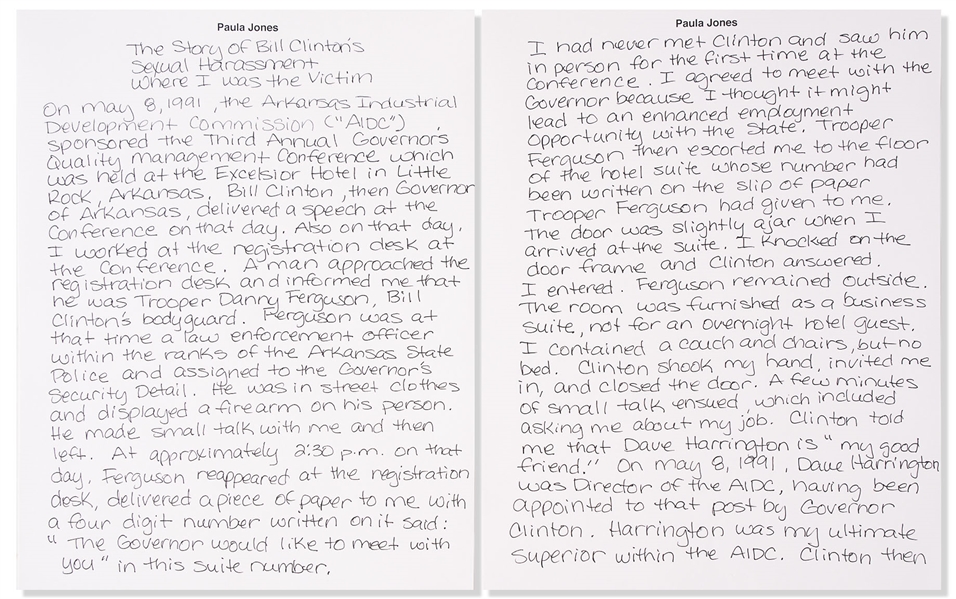 Paula Jones
The Story of Bill Clinton's
Sexual Harassment
Where I was the Victim
On may 8, 1991, the Arkansas Industrial
Development Commission ("AIDC")
sponsored the Third Annual Governor's
Quality management Conference which
was held at the Excelsior Hotel in Little
Rock, Arkansas, Bill Clinton, then Governor
of Arkansas, delivered a speech at the
Conference on that day. Also on that day,
I worked at the registration desk at
the Conference. A man approached the
registration desk and informed me that
he was Trooper Danny Ferguson, Bill
Clinton's bodyguard. Ferguson was at
that time a law enforcement officer
within the ranks of the Arkansas State
Police and assigned to the Governor's
Security Detail. He was in street clothes
and displayed a firearm on his person.
He made small talk with me and then
left. At approximately 2:30 p.m. on that
day, Ferguson reappeared at the registration
desk, delivered a piece of paper to me with
a four digit number written on it said:
"The Governor would like to meet with
you" in this suite number.
Paula Jones
I had never met Clinton and saw him
in person for the first time at the
Conference. I agreed to meet with the
Governor because I thought it might
lead to an enhanced employment
opportunity with the State. Trooper
Ferguson then escorted me to the floor
of the hotel suite whose number had
been written on the slip of paper
Trooper Ferguson had given to me.
The door was slightly ajar when I
arrived at the suite. I knocked on the
door frame and Clinton answered.
I entered. Ferguson remained outside.
The room was furnished as a business
suite, not for an overnight hotel guest.
I contained a couch and chairs, but no
bed. Clinton shook my hand, invited me
in, and closed the door. A few minutes
of small talk ensued, which included
asking me about my job. Clinton told
me that Dave Harrington is "my good
friend." On may 8, 1991, Dave Harrington
was Director of the AIDC, having been
appointed to that post by Governor
Clinton. Harrington was my ultimate
superior within the AIDC. Clinton then